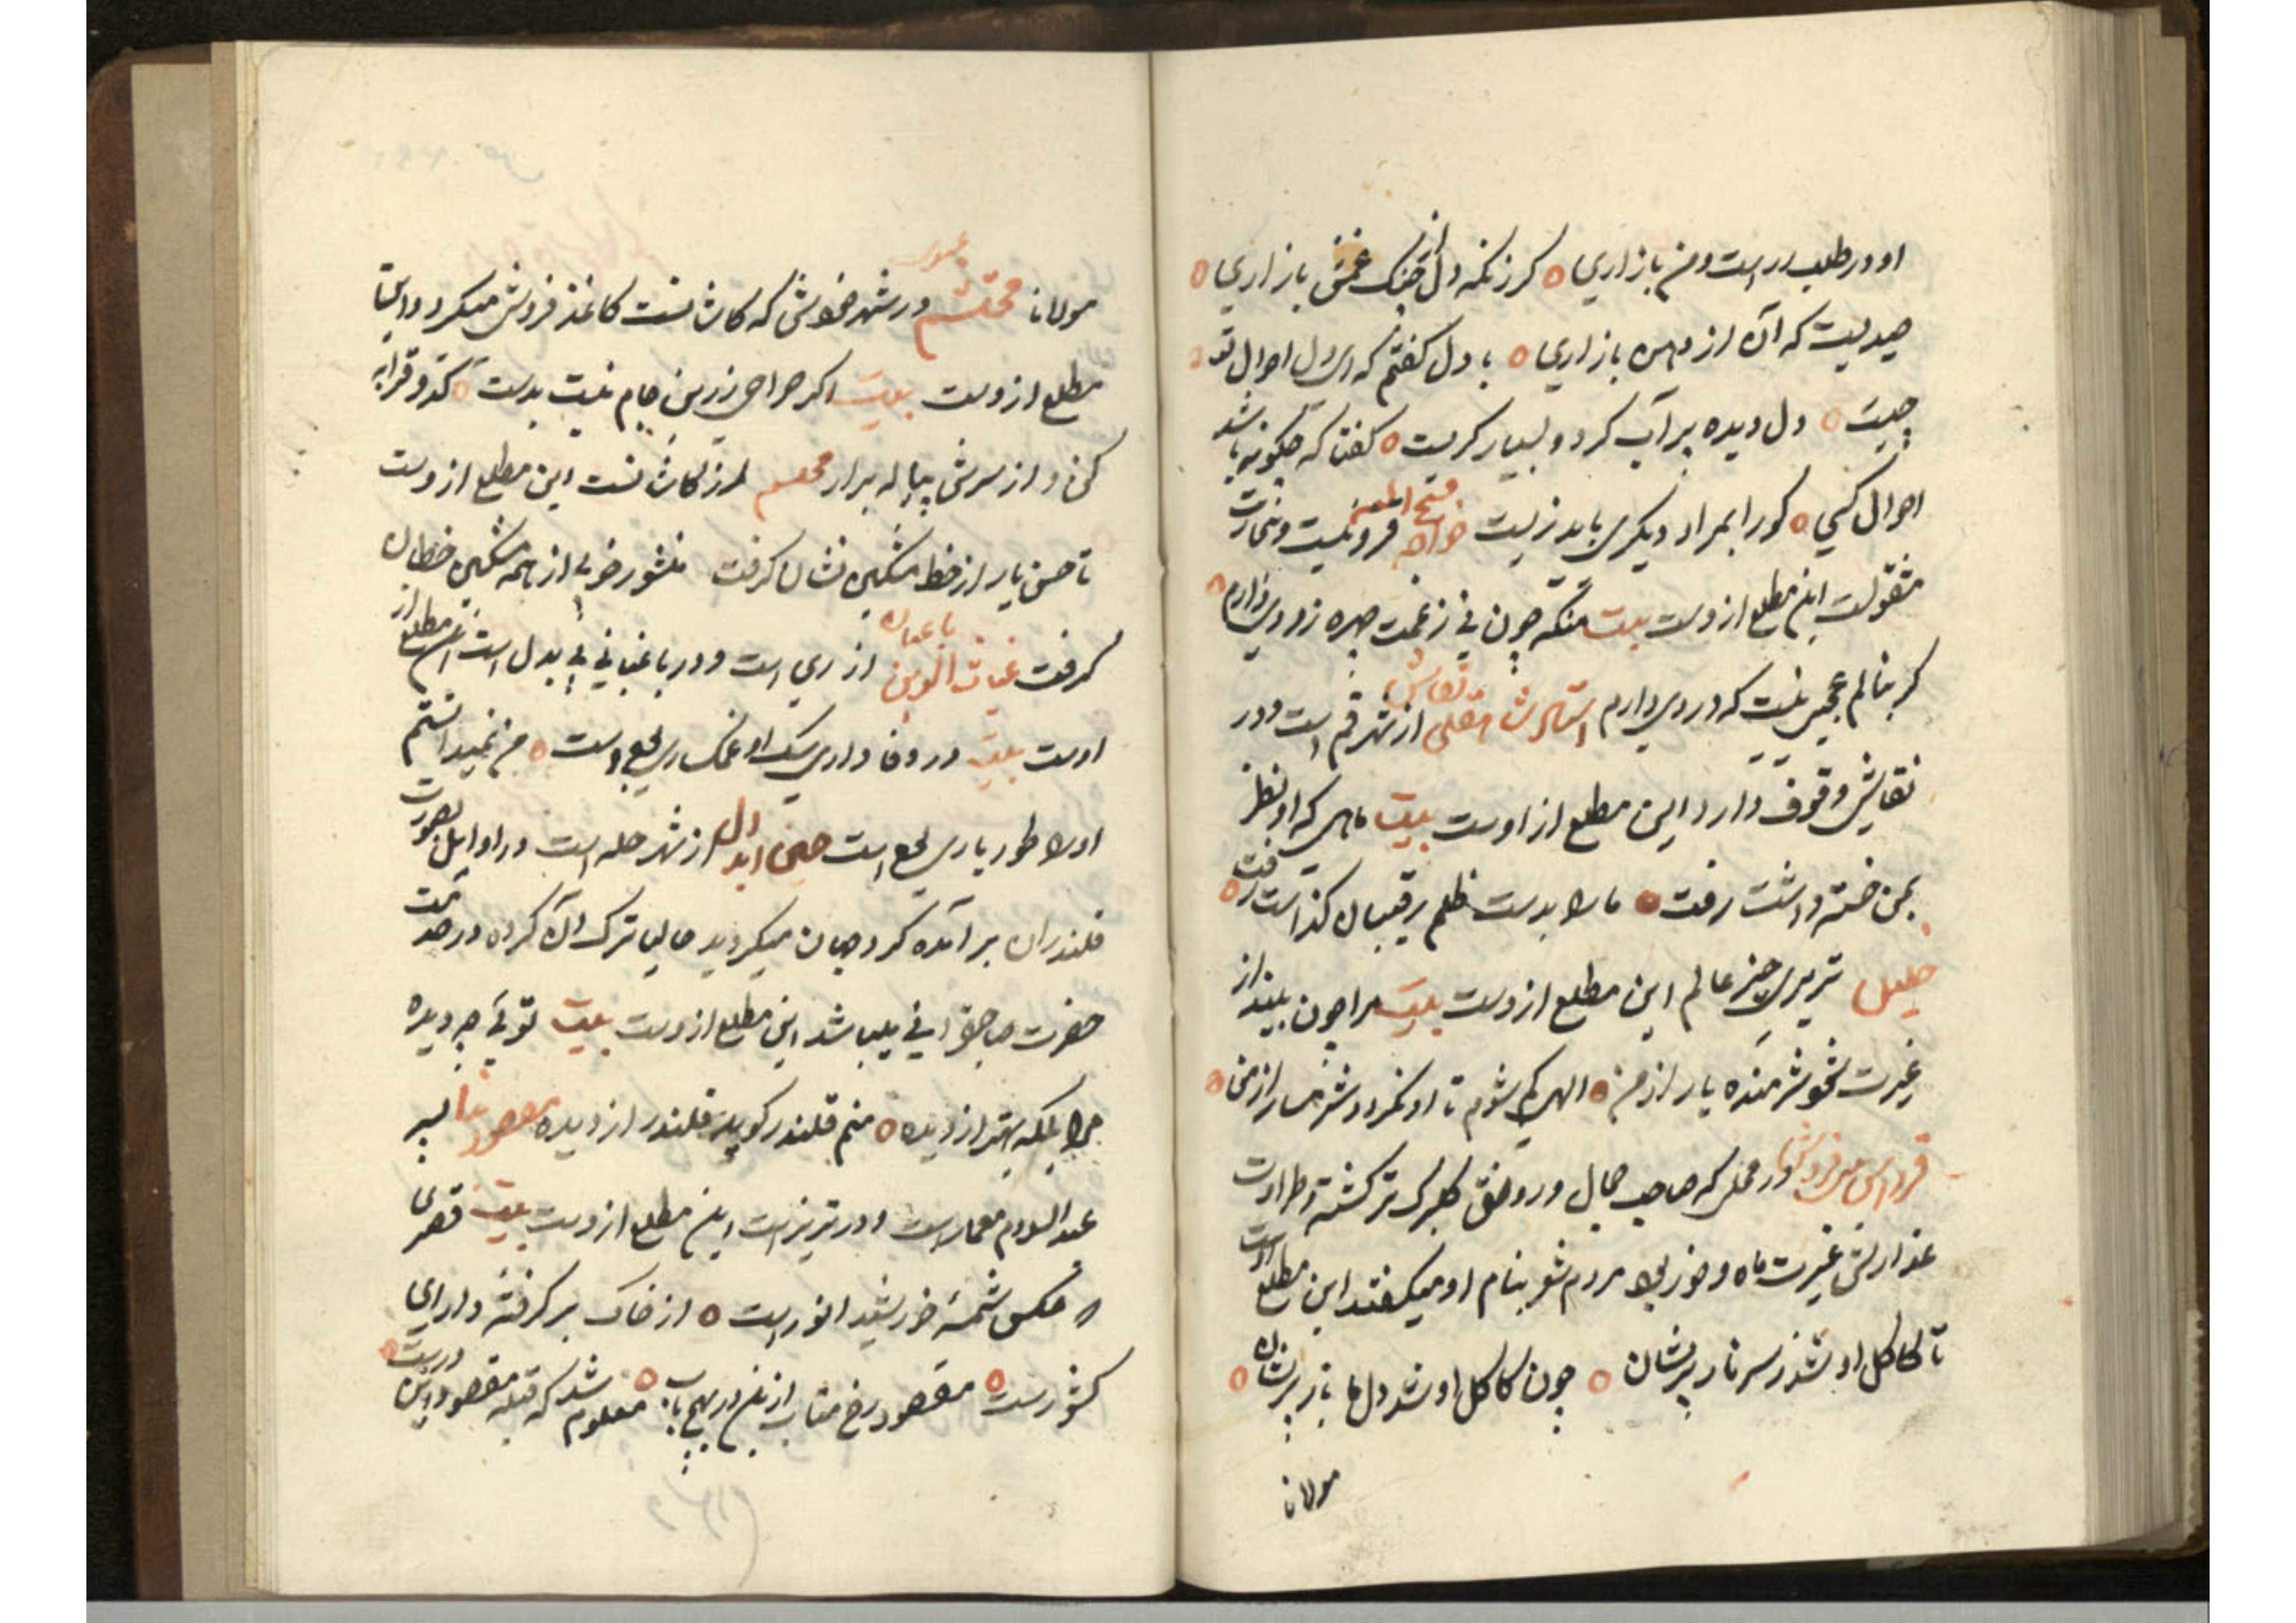 او در طلب زر است و من بازاری ه گر زنکه دل از چنک غمش بازاری ه
صیدیست که آن از دهن بازاری ه با دل گفتم که ای دل احوال تو
چیست ه دل دیده پر آب کرد و بسیار گریست ه گفتا که چگونه باشد
احوال کسی ه کورا بمراد دیگری باید زیست خواجه فتح
مشغولست این مطلع ازوست بیت منکه چون نی ز غمت چهره زردی دارم ه
گر بنالم عجبی نیست که دردی دارم استاد نقاش از شهر قم است و در
نقاشی وقوف دارد این مطلع از اوست بیت ماهی که او نظر
بمن خسته داشت رفت ه ما را بدست ظلم رقیبان گذاشت رفت ه
تبریزی عالم این مطلع ازوست بیت مرا چون بیند از
غیرت شود شرمنده یار از من ه الهی گم شوم تا او نگردد شرمسار از من ه
در محلی که صاحب جمال و رونق گلبرگ تر گشته و طراوت
عذارش غیرت ماه و خور بود مردم شعر بنام او میگفتند این مطلع اوست
تا کاکل او شد ز سر ناز پریشان ه چون کاکل او شد دل ما باز پریشان ه
مولانا
مولانا محتشم در شهر خویش که کاشانست کاغذ فروشی میکرد و این
مطلع ازوست بیت اگر صراحی زرین و جام نیست بدست ه کدو قرابه
کن و از سرش پیاله برار محتشم از کاشانست این مطلع ازوست
تا حسن یار از خط مشکین نشان گرفت منشور خوبی از همه مشکین خطان
گرفت غیاث الدین باغبان از ری است و در باغبانی بی بدل است این مطلع از
اوست بیت در وفا داری سک او غمکساری بوده است ه من نمیدانستم
او را طور یاری بوده است حسن ابدال از شهر حله است در اوایل بصورت
قلندران بر آمده گرد جهان میگردید حالیا ترک آن کرده در خدمت
حضرت صاحبقرانی میباشد این مطلع ازوست بیت تویی چو دیده
مرا بلکه بهتر از دیده ه منم قلندر کویت قلندر از دیده مقصود بنا پسر
عبد السلام معمار است و در تبریز است این مطلع ازوست بیت قصری
که عکس شمسهٔ خورشید انور است ه از خاک بر گرفته دارای
کشور است ه مقصود رخ متاب ازین در بهیچ باب ه معلوم شد که قبله مقصود این در است ه